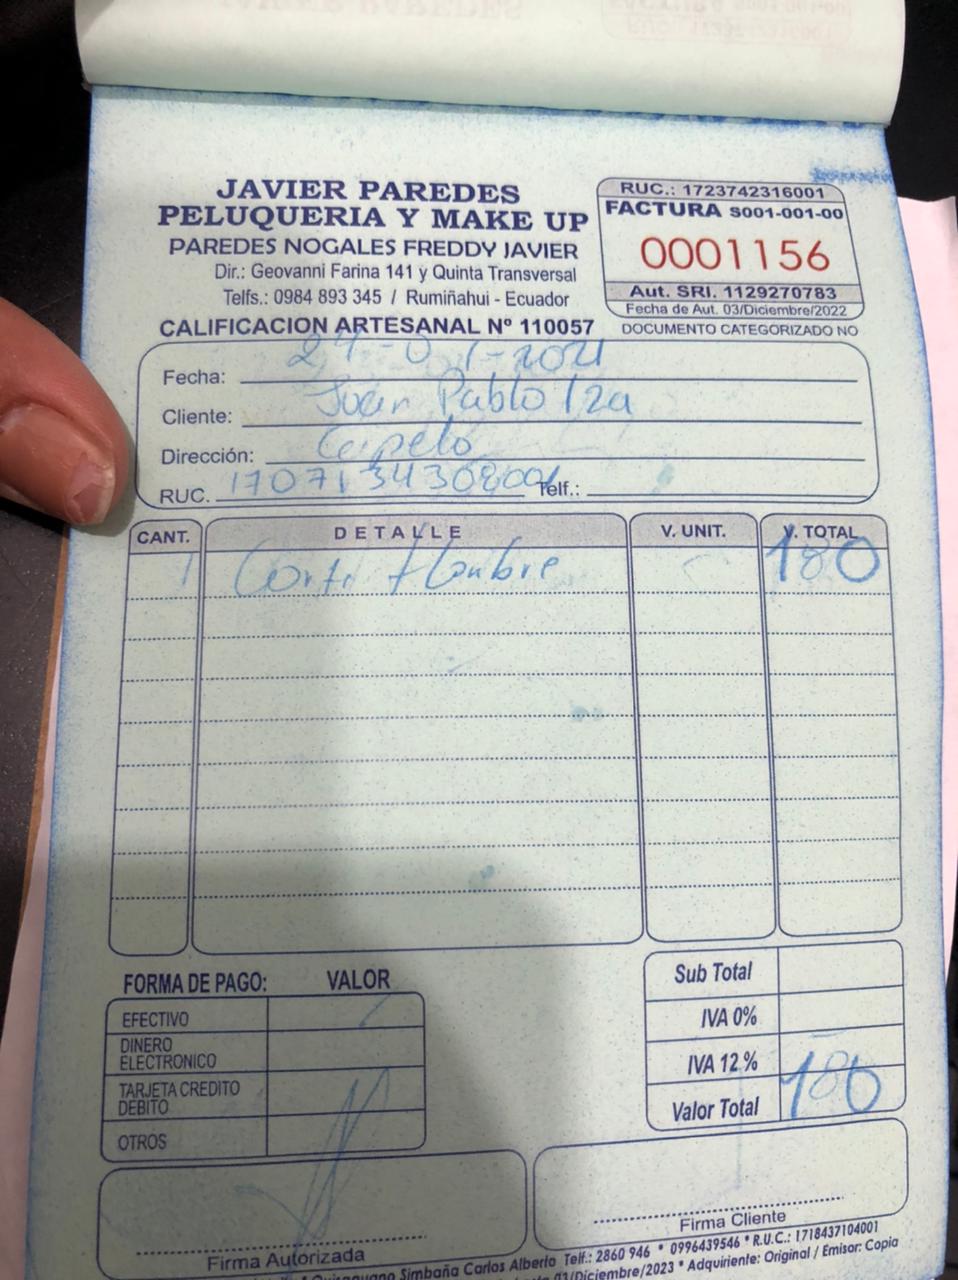 JAVIER PAREDES
PELUQUERIA Y MAKE UP
PAREDES NOGALES FREDDY JAVIER
Dir.: Geovanni Farina 141 y Quinta Transversal
Telfs.: 0984 893 345 / Rumiñahui - Ecuador
CALIFICACION ARTESANAL Nº 110057
RUC.: 1723742316001
FACTURA S001-001-00
0001156
Aut. SRI. 1129270783
Fecha de Aut. 03/Diciembre/2022
DOCUMENTO CATEGORIZADO NO
Fecha:
Cliente: Juan Pablo Iza
Dirección: Capelo
RUC. Telf.:
CANT. DETALLE V. UNIT. V. TOTAL
1 Corte Hombre 180
FORMA DE PAGO: VALOR
EFECTIVO
DINERO
ELECTRONICO
TARJETA CREDITO
DEBITO
OTROS
Sub Total
IVA 0%
IVA 12 %
Valor Total 180
Firma Autorizada
Firma Cliente
Simbaña Carlos Alberto Telf.: 2860 946 * 0996439546 * R.U.C.: 1718437104001
03/Diciembre/2023 * Adquiriente: Original / Emisor: Copia